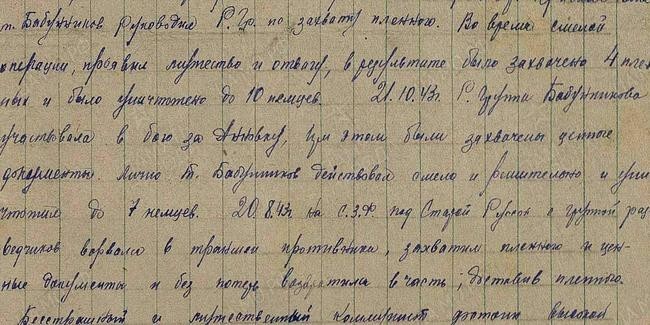 т. Бабушников руководил Р.Гр. по захвату пленного. Во время смелой
операции, проявил мужество и отвагу, в результате было захвачено 4 плен
ных и было уничтожено до 10 немцев. 21.10.43г. Р. группа Бабушникова
участвовала в бою за при этом были захвачены ценные
документы. Лично т. Бабушников действовал смело и решительно и уни
чтожил до 7 немцев. 20.8.43г на С.З.Ф. под Старой Руссой с группой раз
ведчиков ворвался в траншеи противника, захватил пленного и цен-
ные документы и без потерь возвратился в часть, доставив пленного.
Бесстрашный и мужественный коммунист достоин высокой